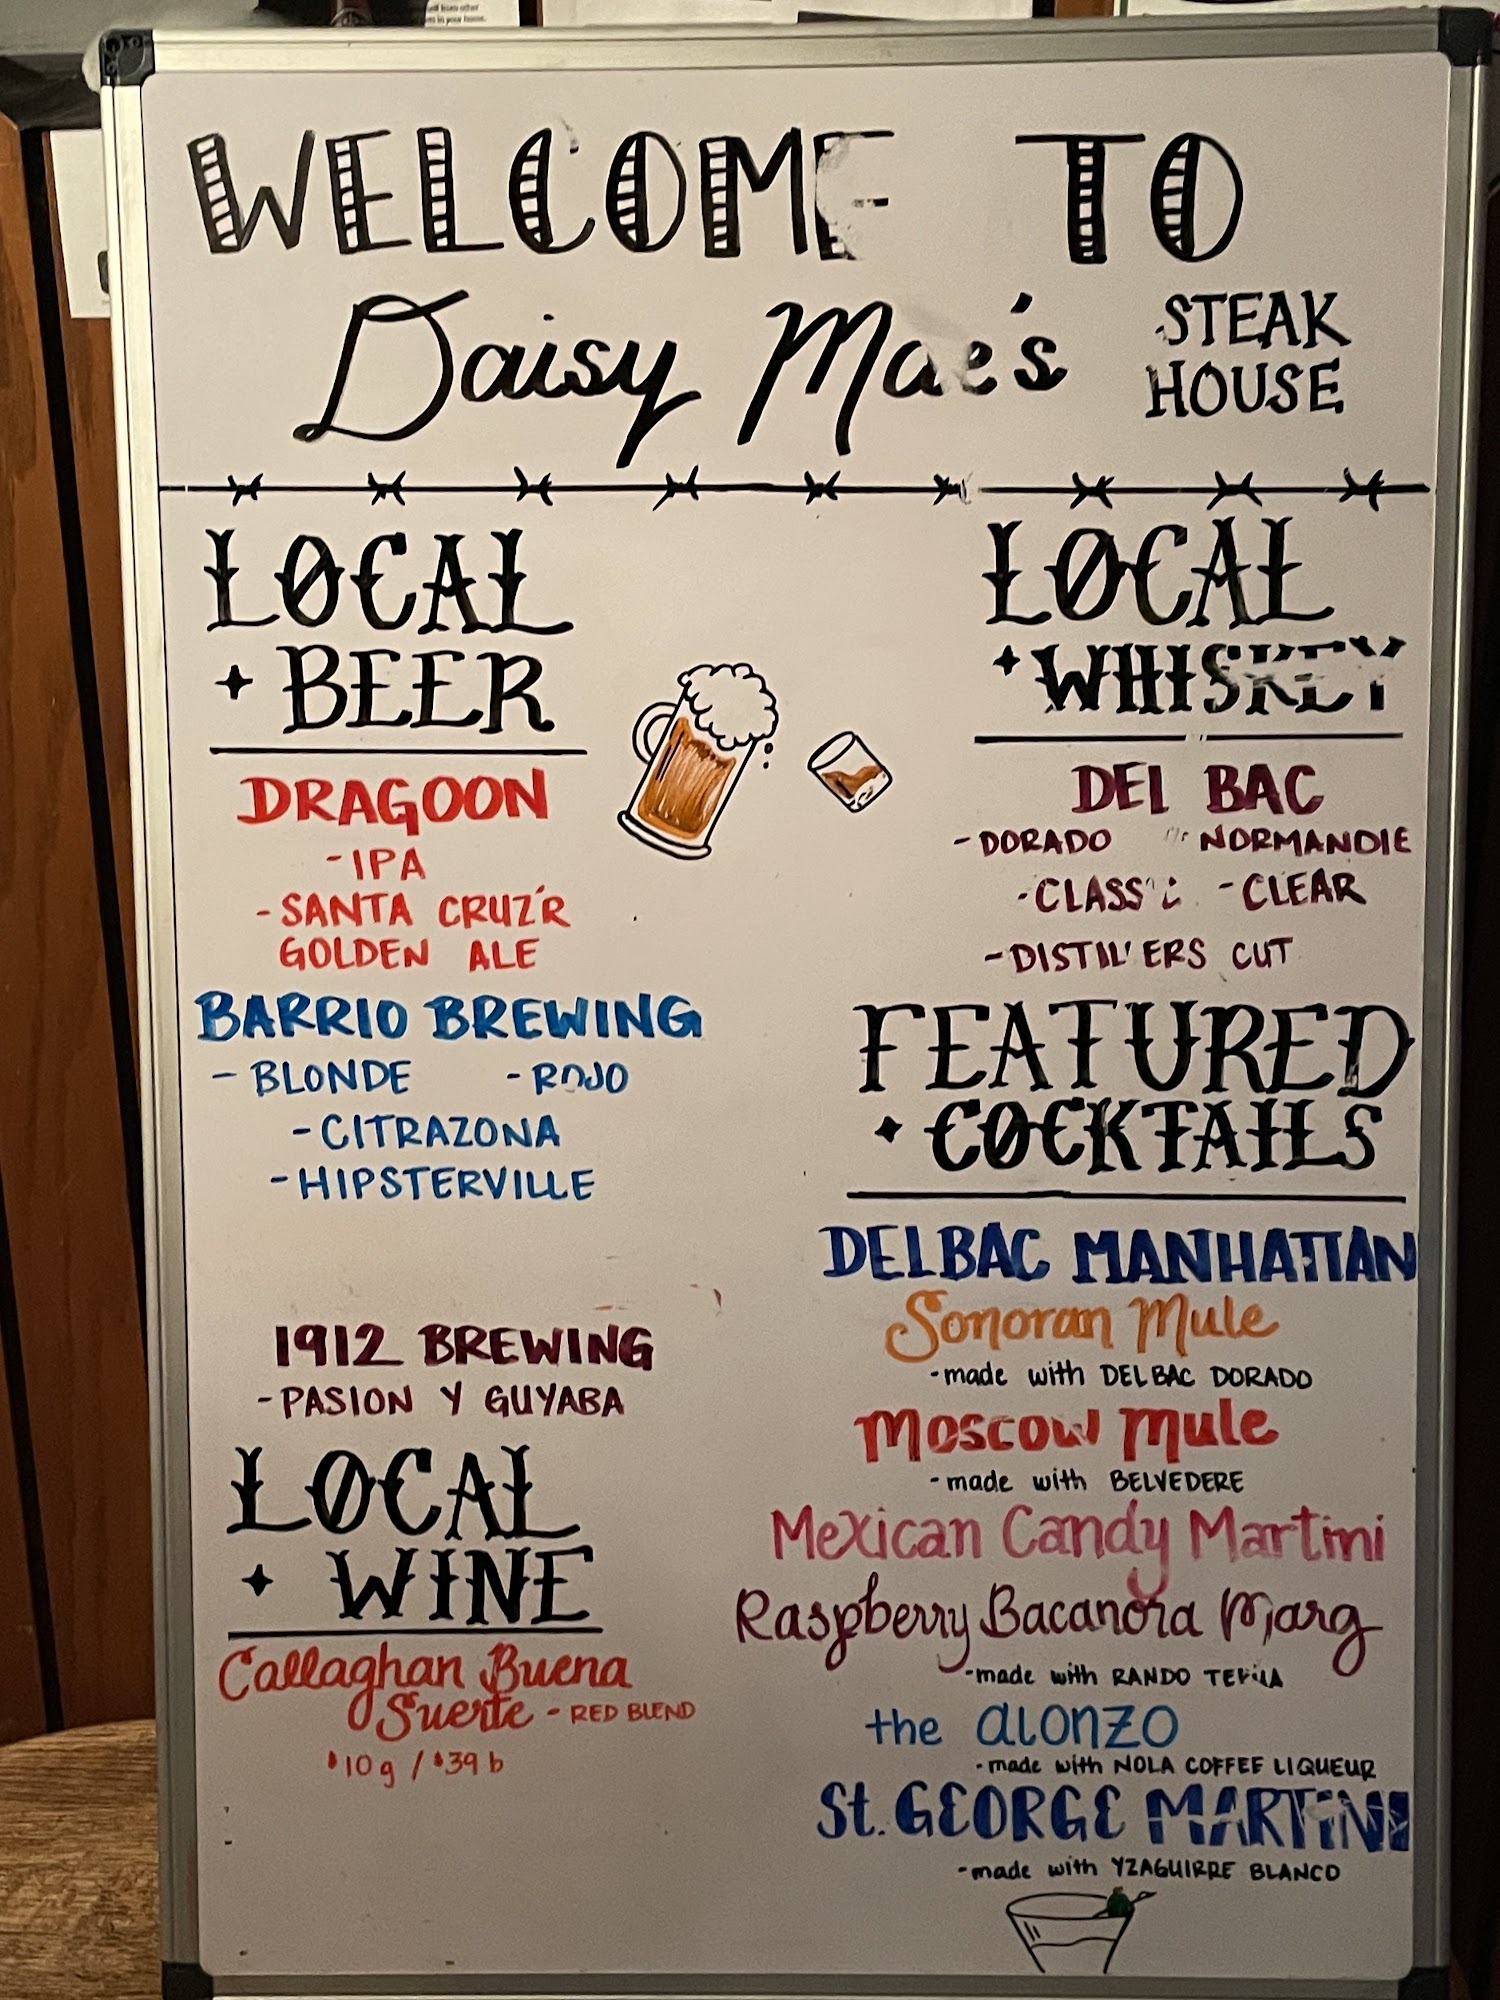 WELCOME TO
Daisy Mae's
STEAK
HOUSE
LOCAL
BEER
DRAGOON
-IPA
-SANTA CRUZ'R
GOLDEN ALE
BARRIO BREWING
-BLONDE -ROJO
-CITRAZONA
-HIPSTERVILLE
1912 BREWING
-PASION Y GUYABA
LOCAL
WINE
Callaghan Buena
Suerte - RED BLEND
$10 g / $39 b
LOCAL
WHISKEY
DEL BAC
-DORADO NORMANDIE
-CLASSIC -CLEAR
-DISTILLERS CUT
FEATURED
COCKTAILS
DELBAC MANHATTAN
Sonoran Mule
-made with DELBAC DORADO
Moscow Mule
-made with BELVEDERE
Mexican Candy Martini
Raspberry Bacanora Marg
-made with RANDO TEKILA
the alonzo
-made with NOLA COFFEE LIQUEUR
St. GEORGE MARTINI
-made with YZAGUIRRE BLANCO